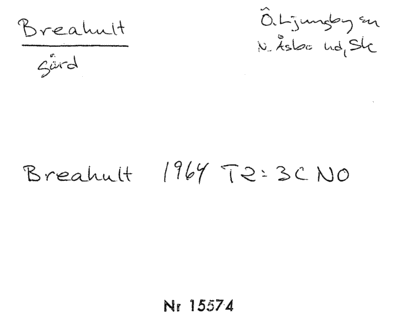 Breahult
gård
Ö. Ljungby sn
N. Åsbo hd, Sk
Breahult 1964 T2: 3C NO
Nr 15574